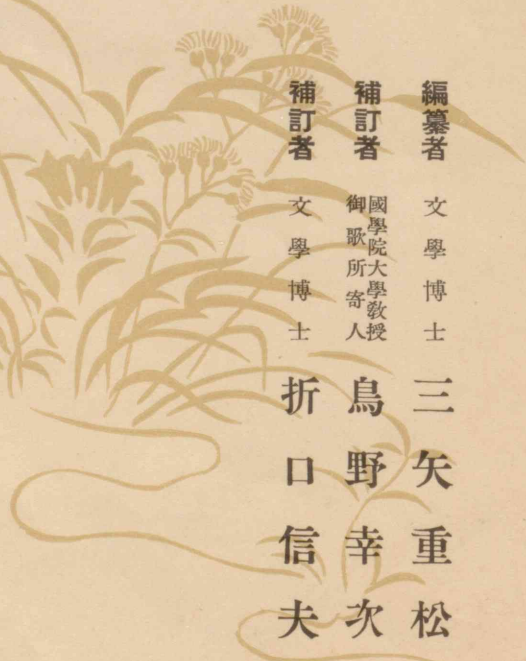 編纂者 文學博士 三矢重松
補訂者 國學院大學教授 御歌所寄人 鳥野幸次
補訂者 文學博士 折口信夫